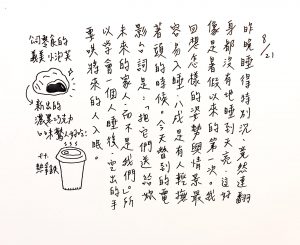 8/21
昨晚睡得特別沉,竟然連翻
身都沒有地睡到天亮,這好
像是暑假以來的第一次。我
回想怎樣的姿勢與情景最
容易入睡,八成是有人輕撫
著頭的時候。今天瞥到的電
影台詞是:「把它們送給妳
未來的家人,而不是我們。」所
以學會一個人睡後,空出的手
要哄將來的人入眠。
公司零食的
義美小泡芙
新出的
濃黑巧克力
口味驚人好吃!
廿
熱拿鐵